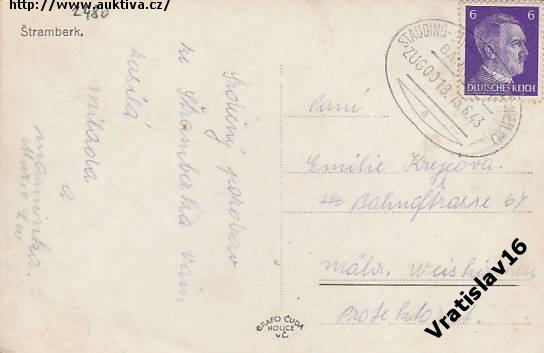 http://www.auktiva.cz/
2480
Štramberk.
Srdečný pozdrav
ze Štramberka vám
zasílá
milada
a
maminka.
STAUDING-
BA
ZUG 0013
6.43
a
6 6
DEUTSCHES REICH
Paní
Emilie Krejčová.
Bahnhofstrasse 67
Mähr. Weis
Protektorat
GRAFO ČUDA
HOLICE
V Č.
Vratislav16